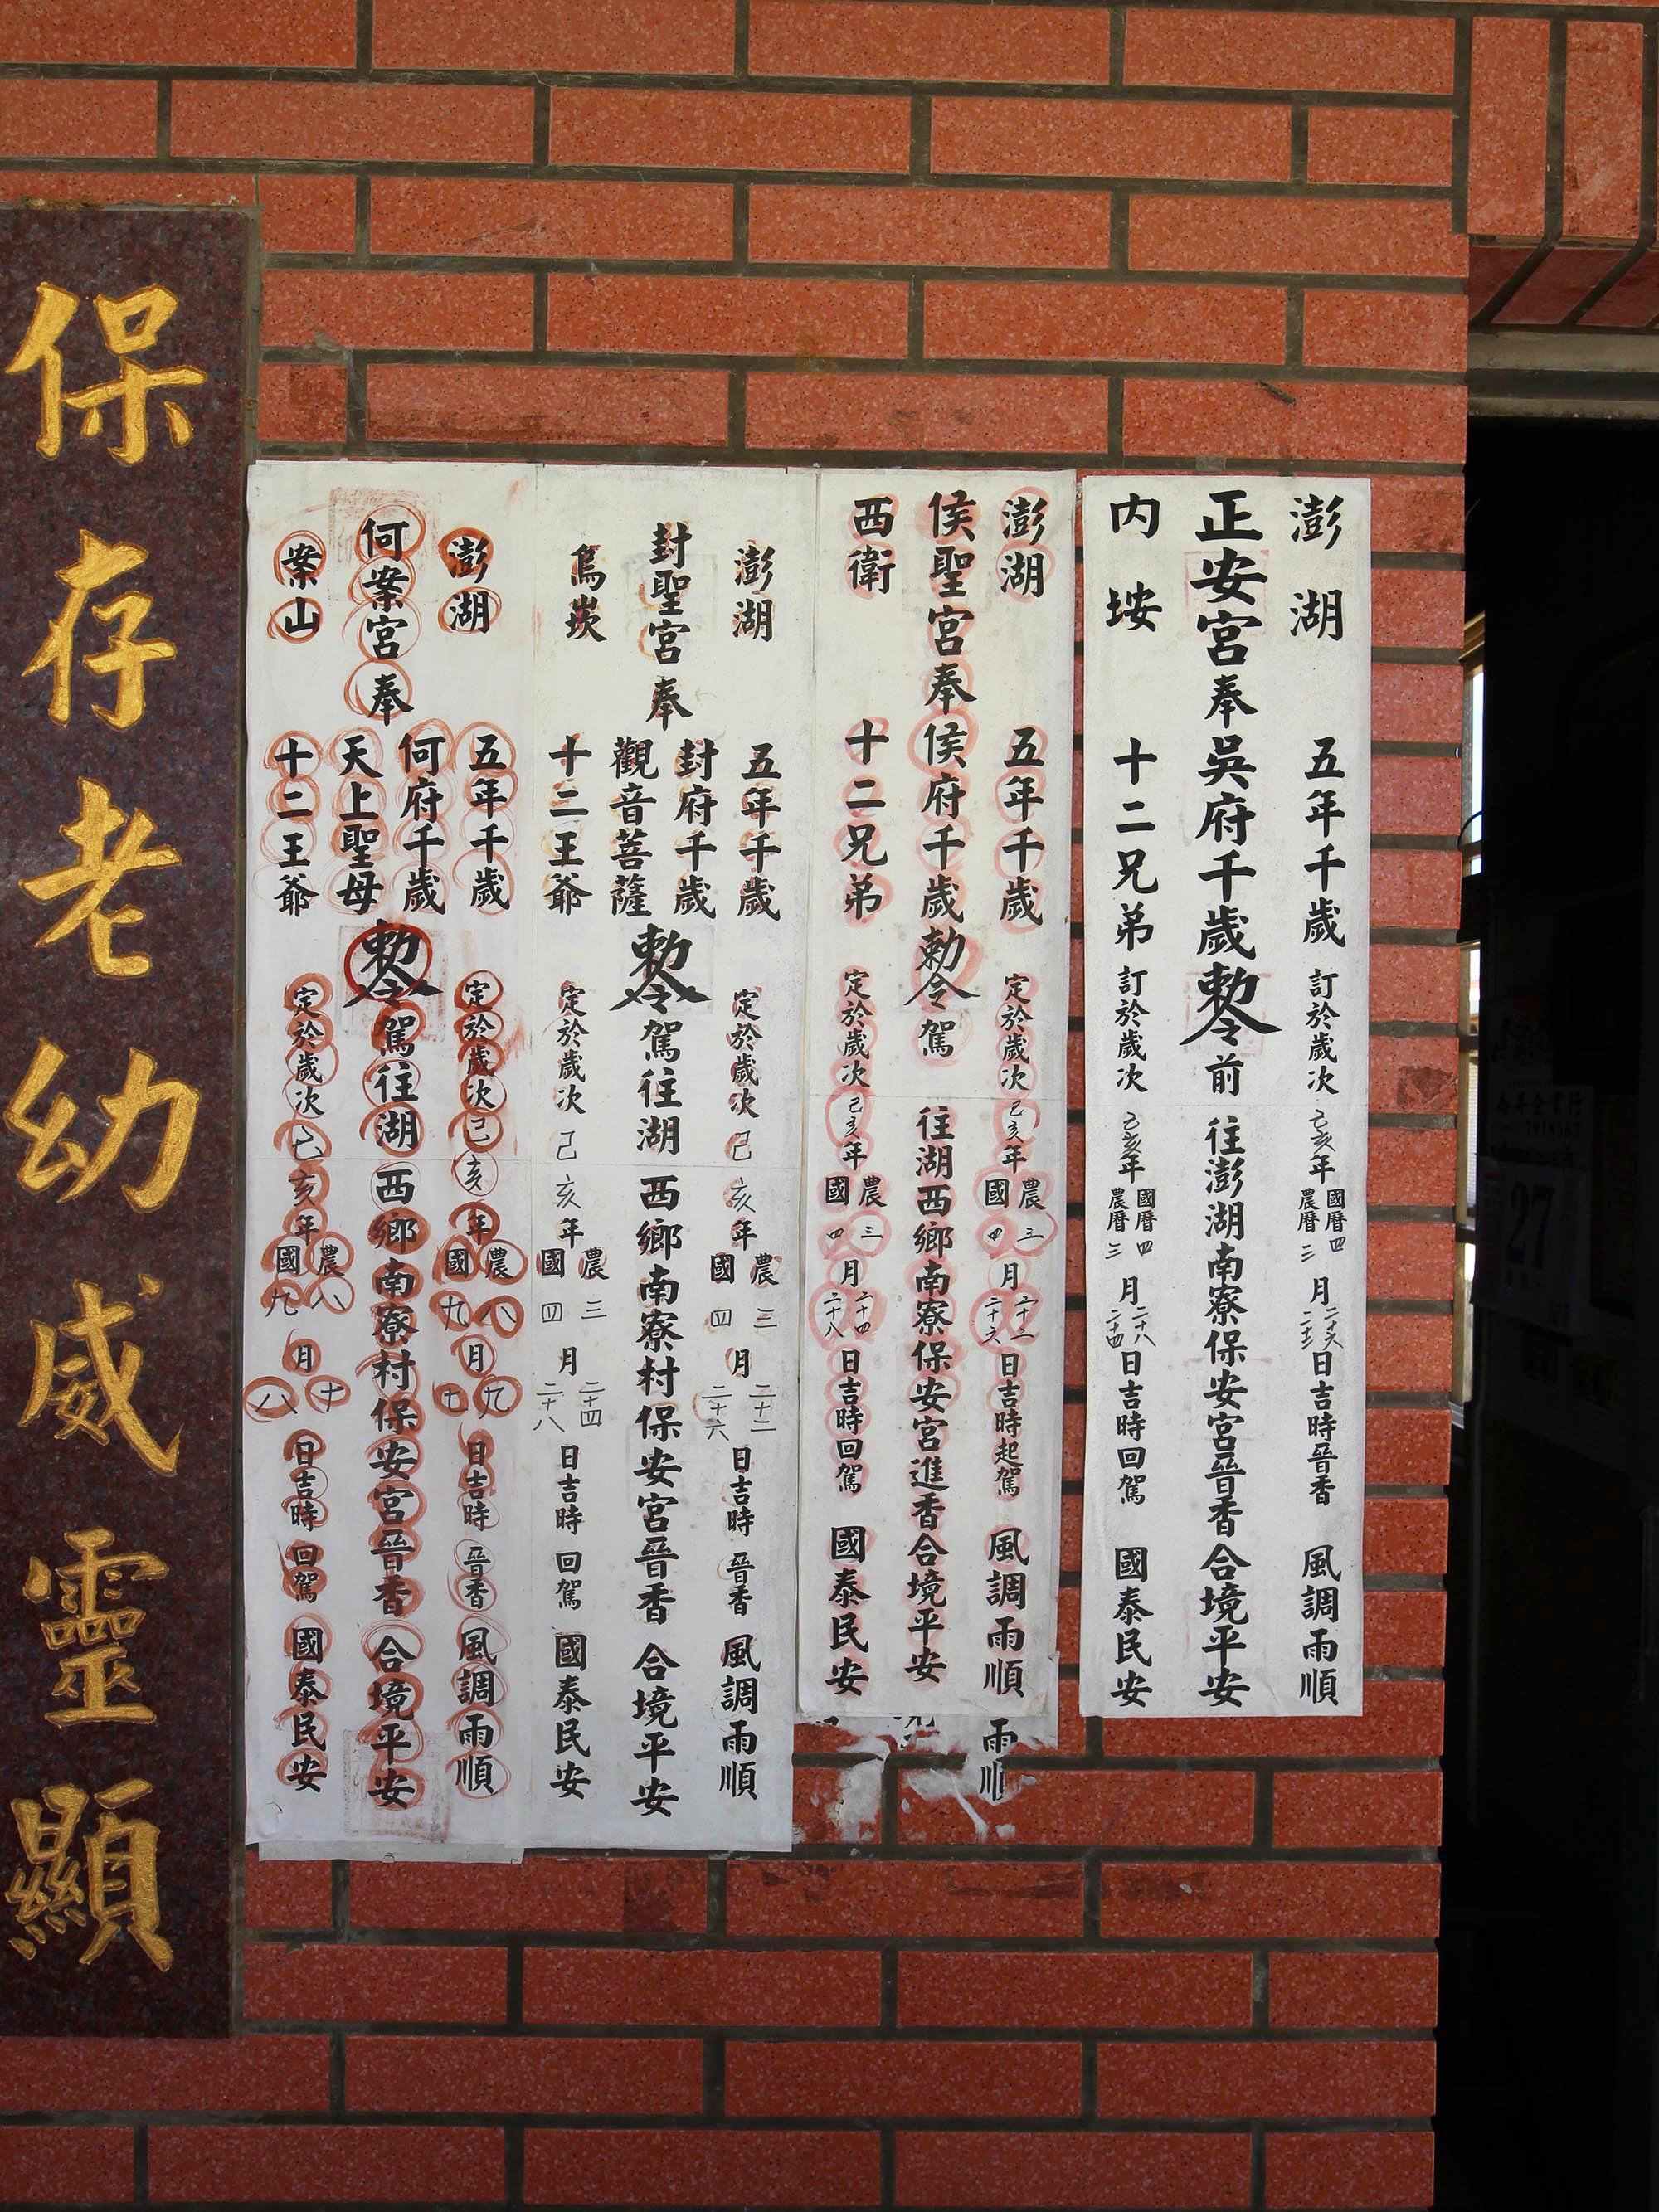 27
澎湖 五年千歲 訂於歲次己亥年國曆四農曆三月二十六二十二日吉時晉香 風調雨順
正安宮奉吳府千歲敕令前往澎湖南寮保安宮晉香合境平安
內垵 十二兄弟 訂於歲次己亥年國曆四農曆三月二十八二十四日吉時回駕 國泰民安
澎湖 五年千歲 定於歲次己亥年農三國四月二十二二十六日吉時起駕 風調雨順
侯聖宮奉侯府千歲勅令駕往湖西鄉南寮保安宮進香合境平安
西衛 十二兄弟 定於歲次己亥年農三國四月二十四二十八日吉時回駕 國泰民安
雨順
澎湖 五年千歲 定於歲次己亥年農三國四月二十二二十六日吉時晉香 風調雨順
封聖宮奉 封府千歲 觀音菩薩 敕令駕往湖西鄉南寮村保安宮晉香 合境平安
烏崁 十二王爺 定於歲次己亥年農三國四月二十四二十八日吉時回駕 國泰民安
澎湖 五年千歲 定於歲次己亥年農八國九月九七日吉時晉香 風調雨順
何案宮奉 何府千歲 天上聖母 敕令駕往湖西鄉南寮村保安宮晉香 合境平安
案山 十二王爺 定於歲次己亥年農八國九月十八日吉時回駕 國泰民安
保存老幼威靈顯